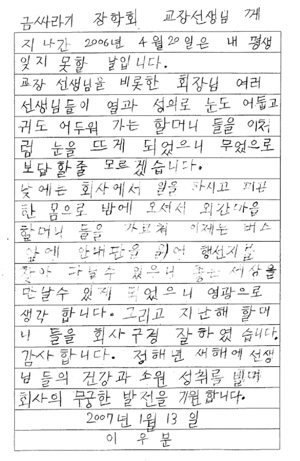 금싸라기 장학회 교장선생님 께
지나간 2006년 4월20일은 내 평생
잊지 못할 날입니다.
교장 선생님을 비롯한 회장님 여러
선생님들이 열과 성의로 눈도 어둡고
귀도 어두워 가는 할머니 들을 이처
럼 눈을 뜨게 되었으니 무엇으로
보답할줄 모르겠습니다.
낮에는 회사에서 일을 하시고 피곤
한 몸으로 밤에 오셔서 외간마을
할머니 들을 가르쳐 이제는 버스
앞에 안내판을 읽어 행선지를
찾아 다닐수 있으니 좋은 세상을
만날수 있게 되었으니 영광으로
생각 합니다. 그리고 지난해 할머
니 들을 회사구경 잘하였습니다.
감사합니다. 정해년 새해에 선생
님 들의 건강과 소원 성취를 빌며
회사의 무궁한 발전을 기원합니다.
2007년 1월 13일
이 우 분